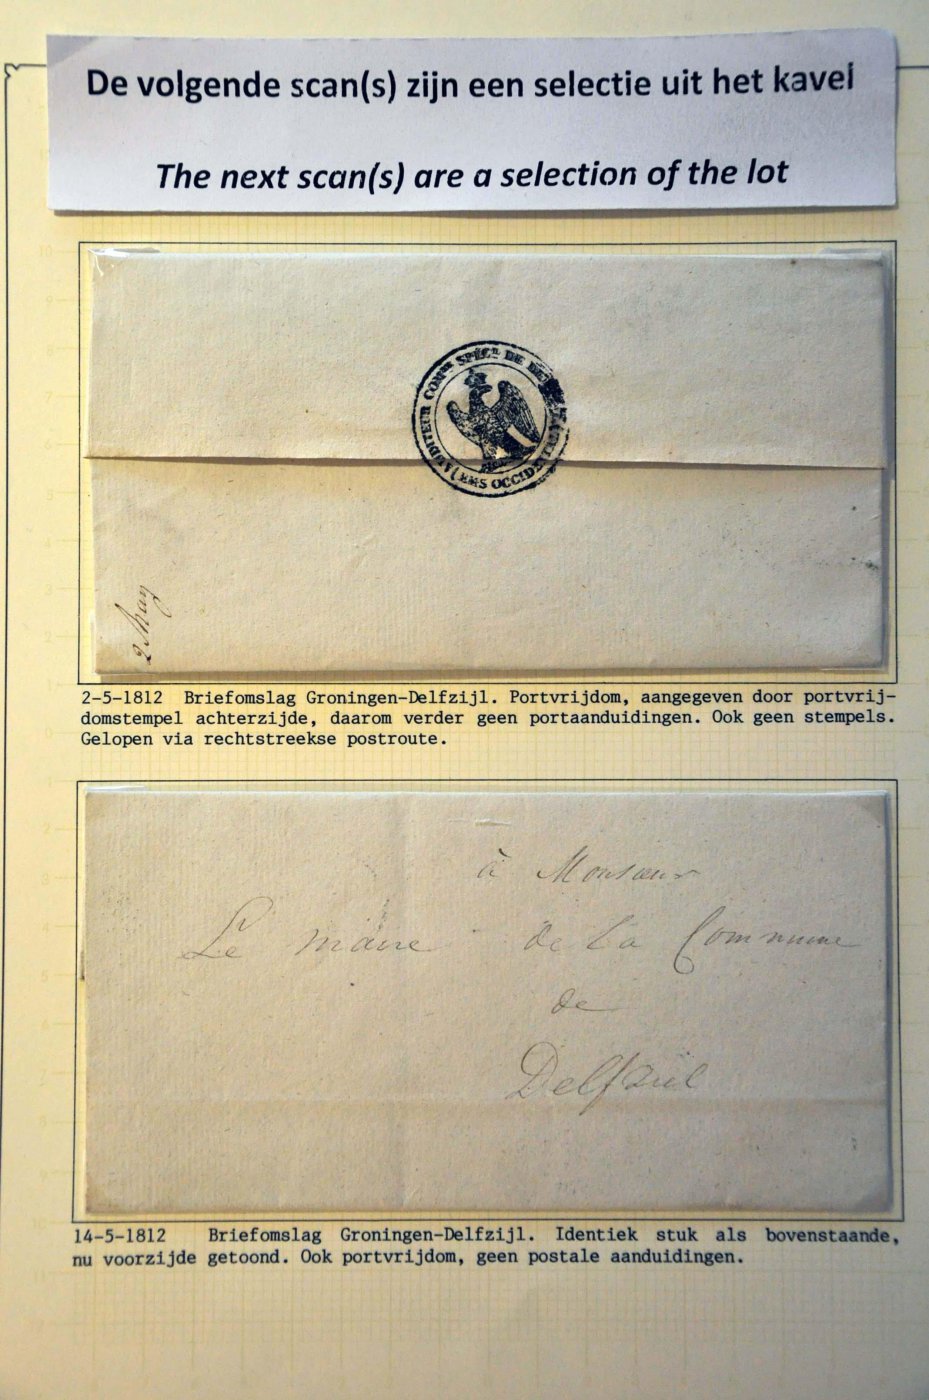 De volgende scan(s) zijn een selectie uit het kavel
The next scan(s) are a selection of the lot
AUDITEUR COMre SPÉCL DE
OCCIDEN
2 May
2-5-1812 Briefomslag Groningen-Delfzijl. Portvrijdom, aangegeven door portvrij-
domstempel achterzijde, daarom verder geen portaanduidingen. Ook geen stempels.
Gelopen via rechtstreekse postroute.
à Monsieur
Le maire de la Commune
de
Delfzïel
14-5-1812 Briefomslag Groningen-Delfzijl. Identiek stuk als bovenstaande,
nu voorzijde getoond. Ook portvrijdom, geen postale aanduidingen.